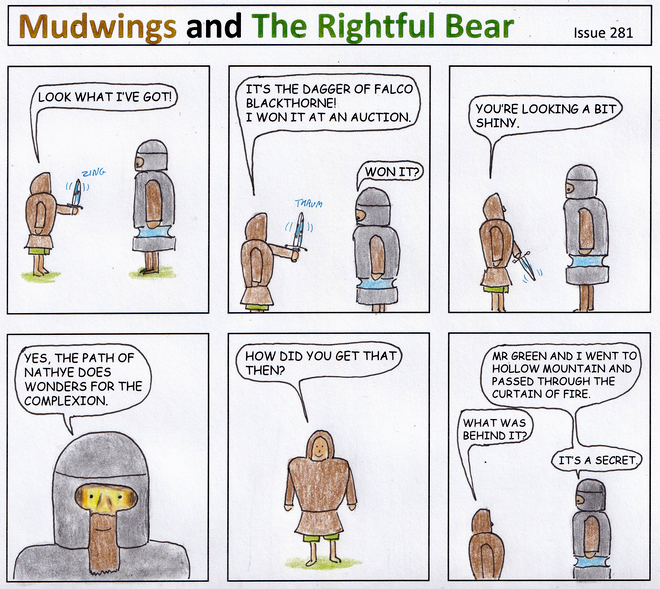 Mudwings and The Rightful Bear
Issue 281
LOOK WHAT I'VE GOT!
ZING
IT'S THE DAGGER OF FALCO
BLACKTHORNE!
I WON IT AT AN AUCTION.
WON IT?
THRUM
YOU'RE LOOKING A BIT
SHINY.
YES, THE PATH OF
NATHYE DOES
WONDERS FOR THE
COMPLEXION.
HOW DID YOU GET THAT
THEN?
MR GREEN AND I WENT TO
HOLLOW MOUNTAIN AND
PASSED THROUGH THE
CURTAIN OF FIRE.
WHAT WAS
BEHIND IT?
IT'S A SECRET.